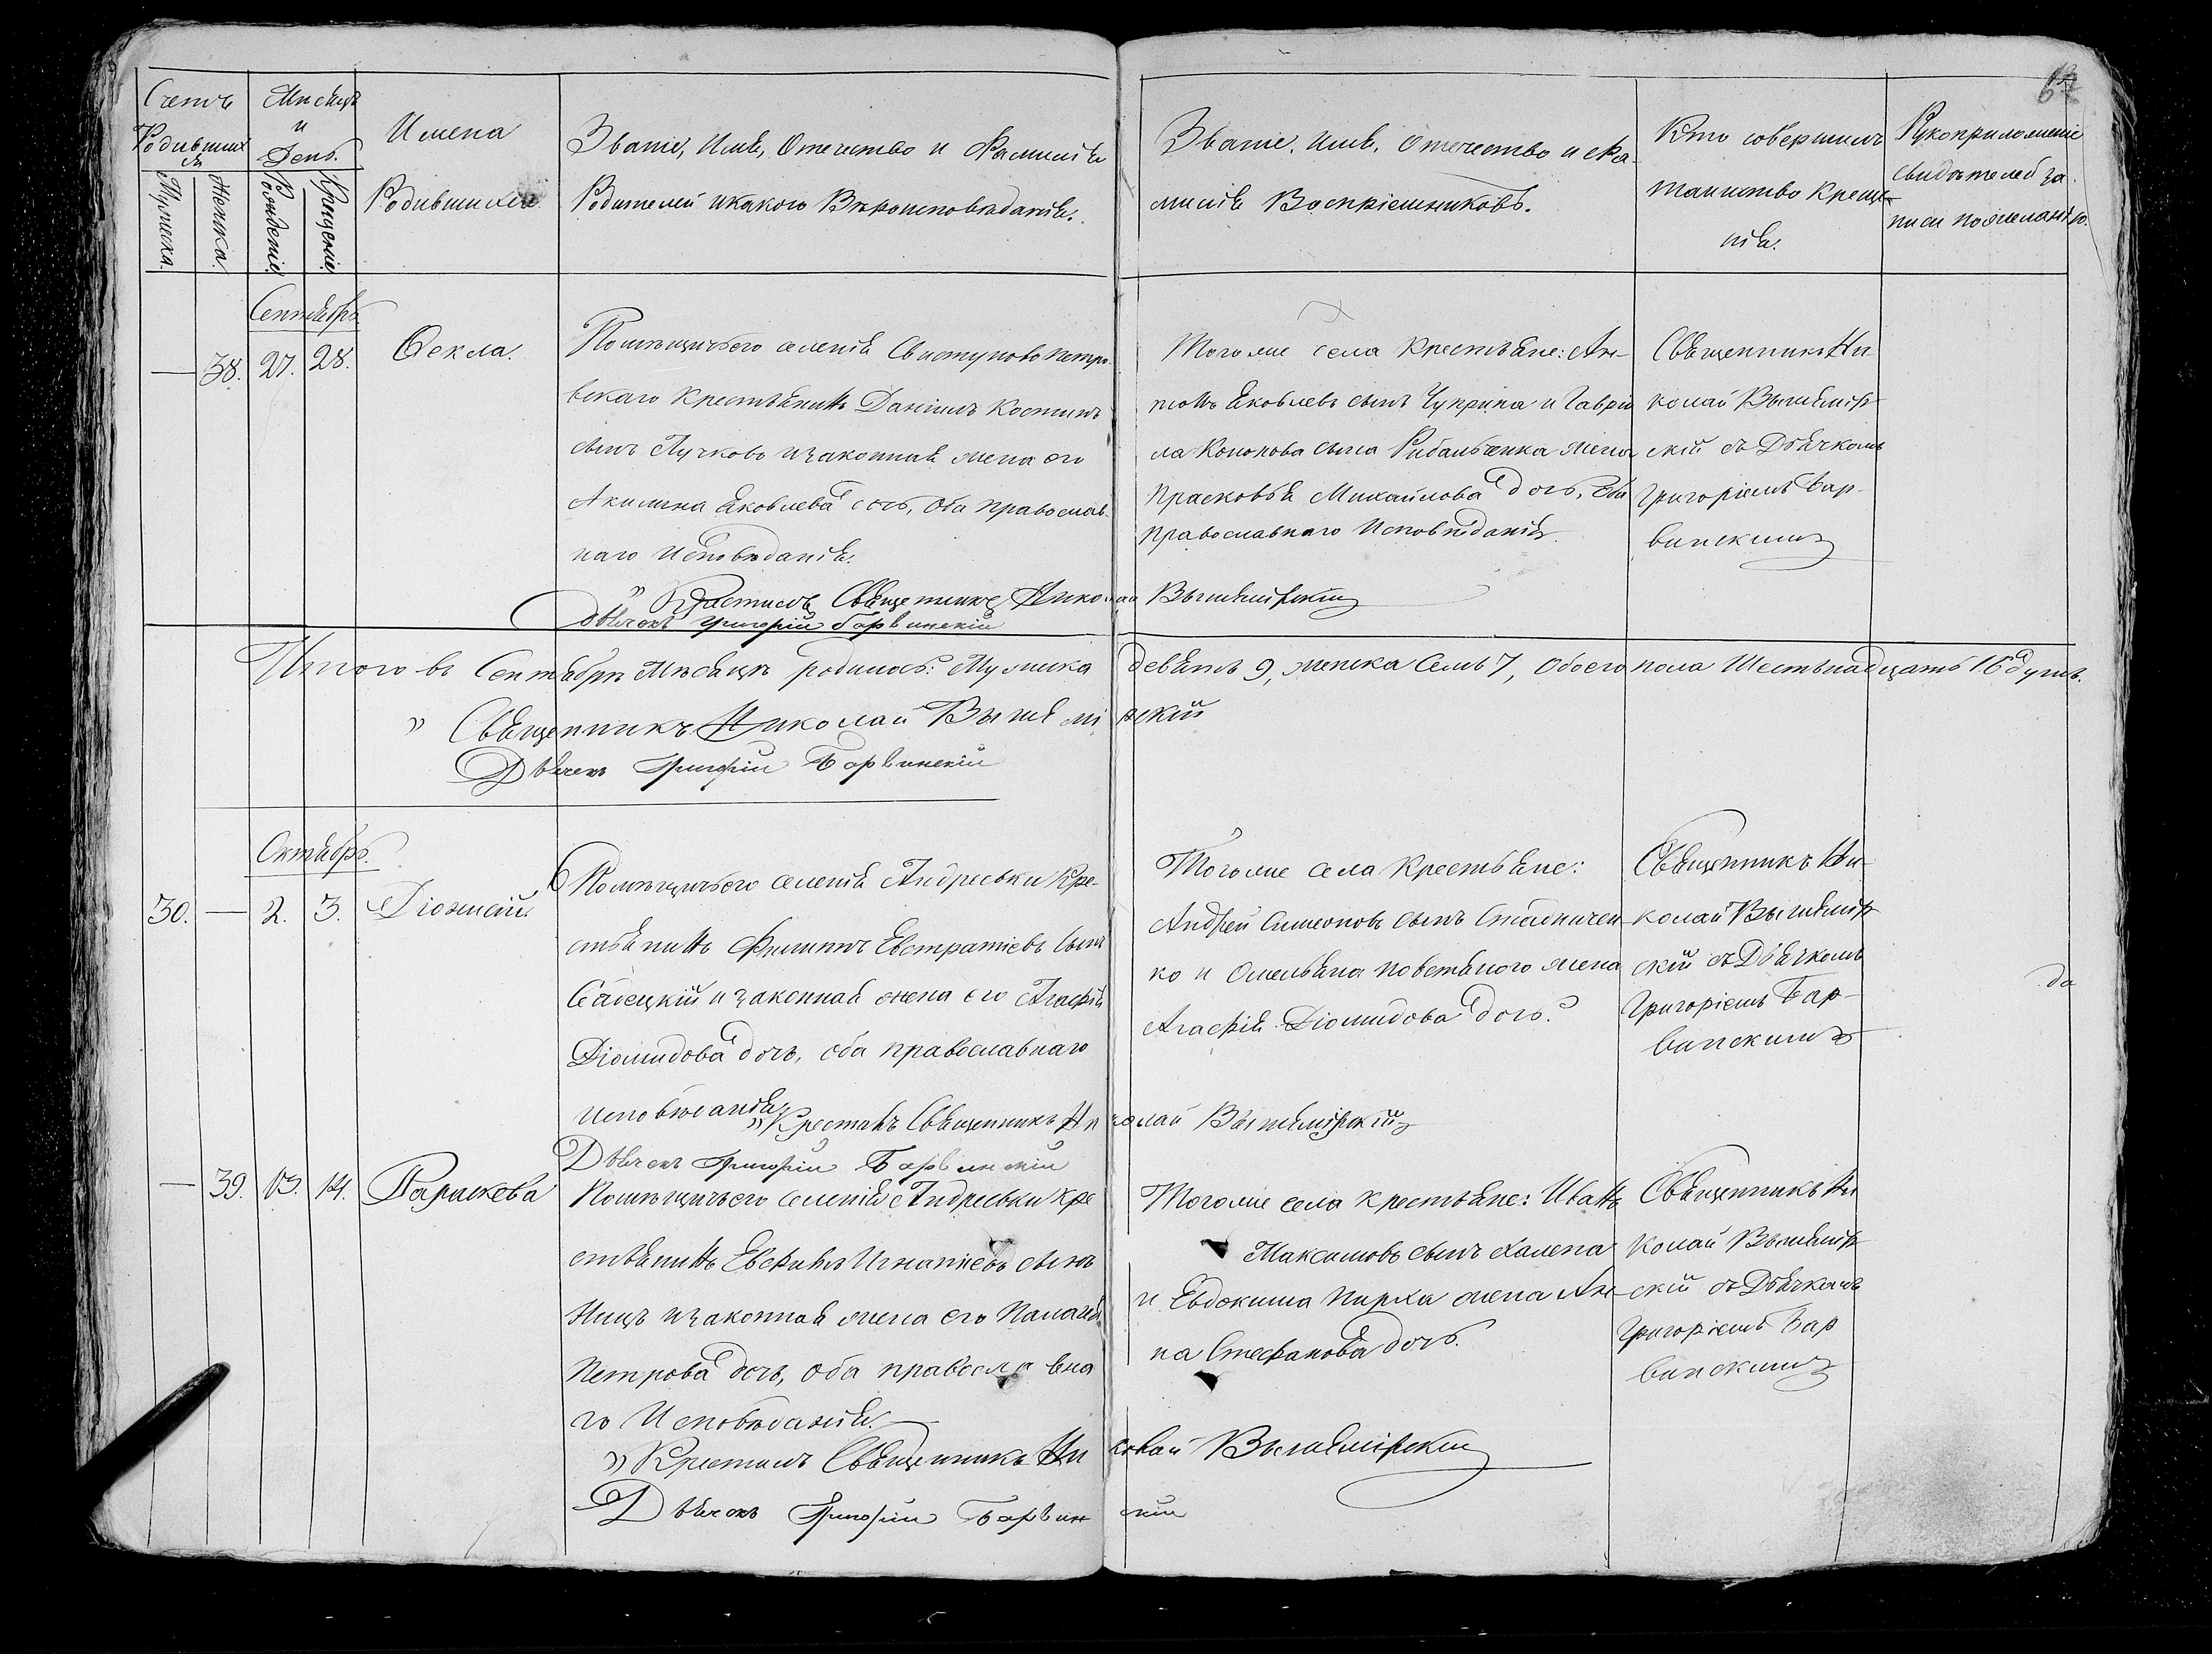 67
Счетъ
Родивших
ся
Мужеска.
Женска.
Мѣсяцъ
и
День.
Рожденіе
Крещеніе
Имена
Родившихся
Званіе, Имя, Отечество и Фамилія
Родителей и какого Вѣроисповѣданія.
Званіе. имя. Отечество и Фа-
милія Воспріемниковъ.
Кто совершилъ
таинство Креще-
нія.
Рукоприложеніе
свидѣтелей за-
писи по желанію.
Сентябрь
— 38. 27. 28. Ѳекла.
Помѣщичьего селенія Свистуново петро-
вскаго Крестьянинъ Даніилъ Костинъ
сынъ Пучково и законная жена его
Акилина Яковлева дочь, Оба православ-
наго Исповѣданія.
Тогожъе села Крестьяне: Ан-
тонъ Яковлевъ сынъ Чуприна и Гаврі
ла Кононова сына Рибальченка жена
Прасковья Михайлова дочь, Оба
православнаго Исповѣданія.
Священникъ Ни-
колай Вышемір-
скій съ Дьячкомъ
Григоріемъ Бар-
винскимъ
" Крестилъ Священникъ Николай Вышемірскій
Дьячекъ Григорій Барвинскій
Итого въ Сентябрѣ Мѣсяцѣ родилось: Мужеска девять 9, женска Семь 7, Обоего пола Шестьнадцать 16 душъ.
" Священникъ Николай Вышемірскій
Дьячекъ Григорій Барвинскій
Октябрь.
30. — 2. 3. Діонисій.
Помѣщичьего селенія Андреевки Кре-
стьянинъ Филиппъ Евстратіевъ сынъ
Садецкій и законная жена его Агафія
Діомидова дочь, оба православнаго
исповѣданія
Тогожъе села Крестьяне:
Андрей Симеоновъ сынъ Стадничен-
ко и Омельяна поветяного жена
Агафія Діомидова дочь.
Священникъ Ни-
колай Вышемір-
скій съ Дьячкомъ
Григоріемъ Бар-
винскимъ
до
" Крестилъ Священникъ Николай Вышемірскій
Дьячекъ Григорій Барвинскій
— 39. 13. 14. Параскева
Помѣщичьего Селенія Андреевки Кре
стьянинъ Евфимъ Игнатіевъ сынъ
Нищъ и законная жена его Палагія
Петрова дочь, оба православна
го Исповѣданія.
Тогожъе села Крестьяне: Иванъ
Максимовъ сынъ Халепа
и Евдокима Пирха жена Ан-
на Стефанова дочь.
Священникъ Ни
колай Вышемір-
скій съ Дьячкомъ
Григоріемъ Бар
винскимъ
" Крестилъ Священникъ Николай Вышемірскій
Дьячекъ Григорій Барвинскій